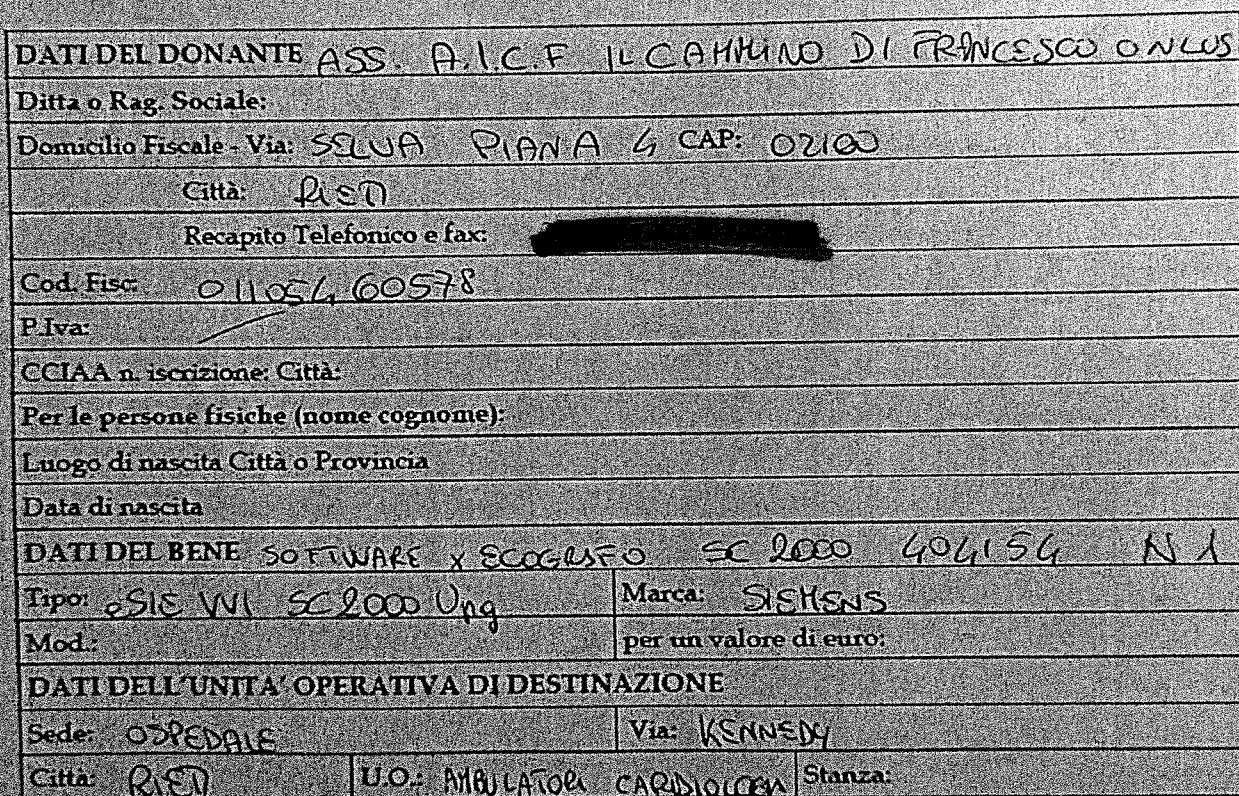 DATI DEL DONANTE ASS. A.I.C.F IL CAMMINO DI FRANCESCO ONLUS
Ditta o Rag. Sociale:
Domicilio Fiscale - Via: SELVA PIANA 4 CAP: 02100
Città: RIETI
Recapito Telefonico e fax:
Cod. Fisc: 01105460578
P.Iva:
CCIAA n. iscrizione: Città:
Per le persone fisiche (nome cognome):
Luogo di nascita Città o Provincia
Data di nascita
DATI DEL BENE SOFTWARE X ECOGRAFO SC 2000 404154 N 1
Tipo: eSIE VVI SC2000 Upg Marca: SIEMENS
Mod.: per un valore di euro:
DATI DELL'UNITA' OPERATIVA DI DESTINAZIONE
Sede: OSPEDALE Via: KENNEDY
Città: RIETI U.O.: AMBULATORI CARDIOLOGIA Stanza: